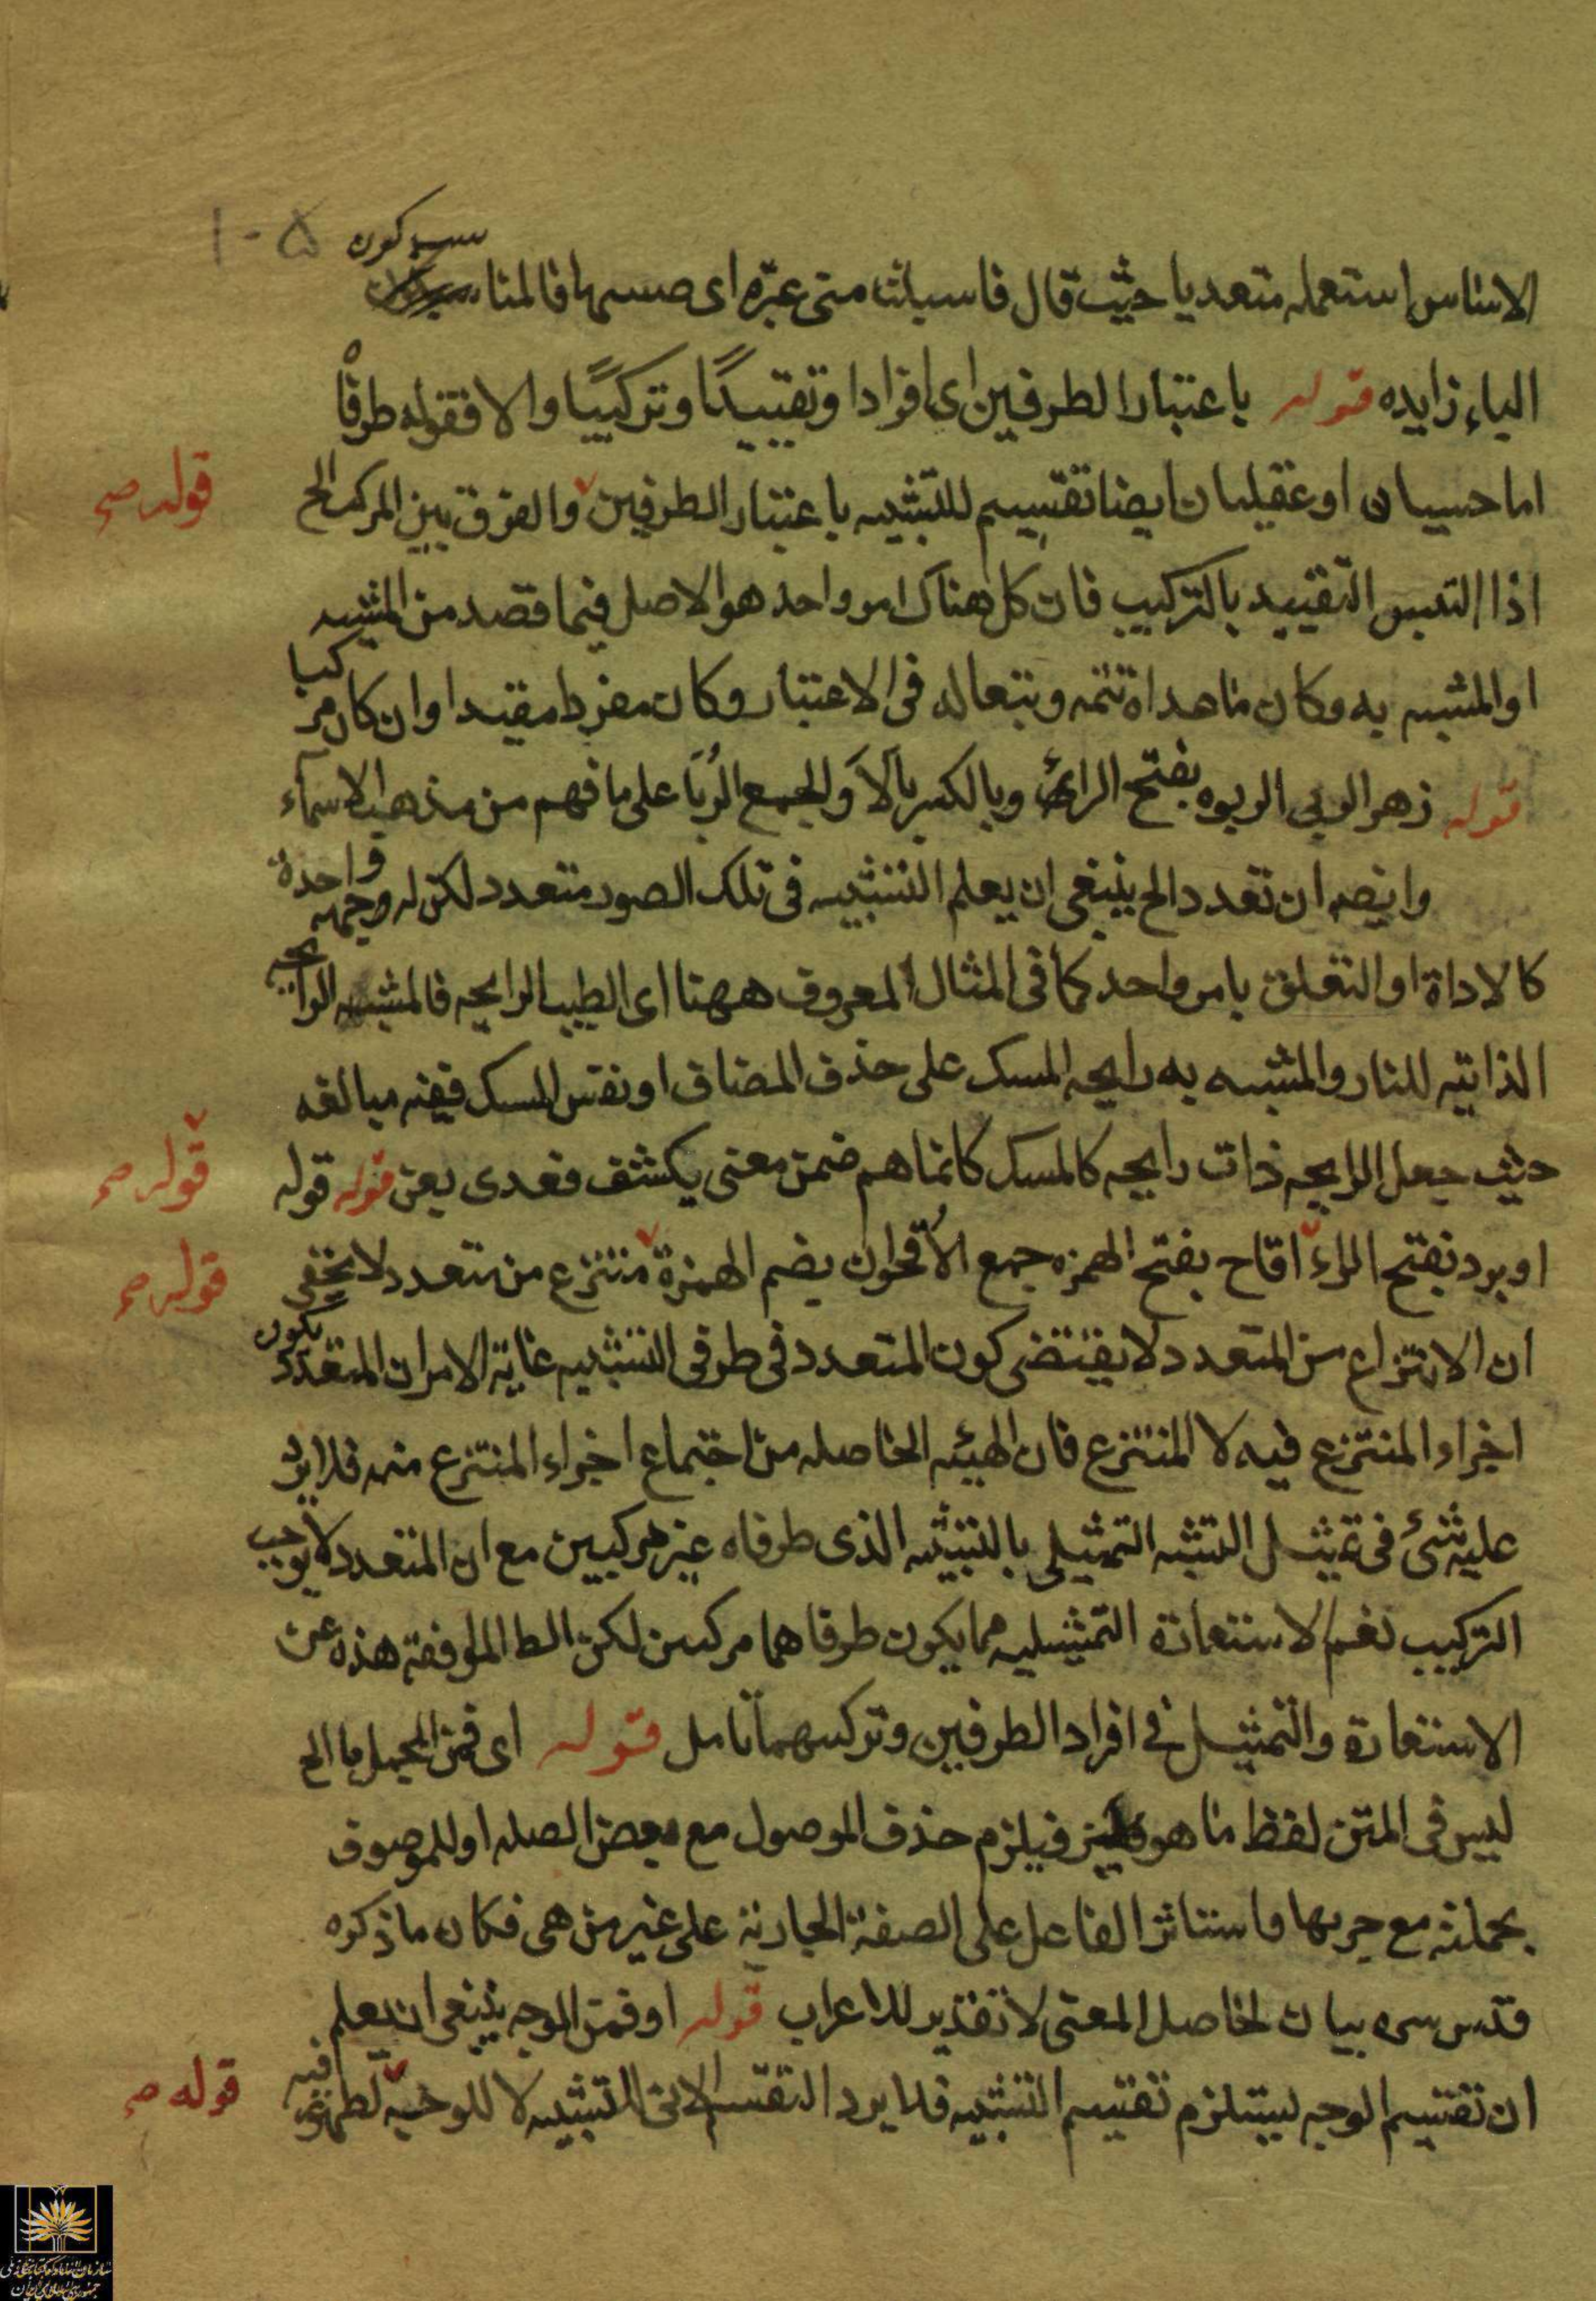 ١٠٥
الاساس استعمله متعديا حيث قال فاسبلت متى عبره اى صسها فالمنا سب كون
الباء زايده قوله باعتبار الطرفين اى افرادا وتقييدًا وتركيبًا والا فقوله طرفاه
اما حسيان او عقليان ايضا تقسيم للتشبيه باعتبار الطرفين والفرق بين المركب الخ
قوله صح
اذا التبس التقييد بالتركيب فان كل هناك امر واحد هو الاصل فيما قصد من المشبه
او المشبه به وكان ماهداه تتمه وتبعا له فى الاعتبار وكان مفردا مقيدا وان كان مركبا
قوله زهر الربى الربوه بفتح الراى وبالكسر بالا والجمع الرُبَا على ما فهم من مذهب الاسماء
وايضه ان تعدد الخ ينبغى ان يعلم التشبيه فى تلك الصور متعدد لكن له وجهه واحدة
كالاداة او التعلق بامر واحد كما فى المثال المعروف ههنا اى الطيب الرايحه فالمشبه الرايحه
الذاتيه للنار والمشبه به رايحه المسك على حذف المضاف او نفس المسك ففيه مبالغه
حيث جعل الرايحه ذات رايحه كالمسك كانما هم ضمن معنى يكشف فعدى بعن قوله قوله
قوله صح
او برد بفتح الراء اقاح بفتح الهمزه جمع الأقحوان بضم الهمزة منتزع من متعدد لا يخفى
قوله صح
ان الانتزاع من المتعدد لا يقتضى كون المتعدد فى طرفى التشبيه غاية الامر ان المتعدد يكون
اجزاء المنتزع فيه لا المنتزع فان الهيئه الحاصله من اجتماع اجزاء المنتزع منه فلا يرد
عليه شئ فى تمثيل التشبه التمثيلى بالتشبيه الذى طرفاه غير مركبين مع ان المتعدد لا يوجب
التركيب نعم الاستعارة التمثيليه مما يكون طرفاهما مركبين لكن الط الموفقة هذه عن
الاستعارة والتمثيل فى افراد الطرفين وتركيبهما تامل قوله اى فمن المجمل ما الخ
ليس فى المتن لفظ ما هو فيلزم حذف الموصول مع بعض الصله او للموصوف
بجملته مع جريها واستتار الفاعل على الصفة الجارية على غير من هى فكان ما ذكره
قدس سره بيان لحاصل المعنى لا تقدير للاعراب قوله او فمن الوجه ينبغى ان يعلم
ان تقسيم الوجه يستلزم تقسيم التشبيه فلا يرد التقسيم الاتى التشبيه لا للوجه لظهور فيه
قوله صح